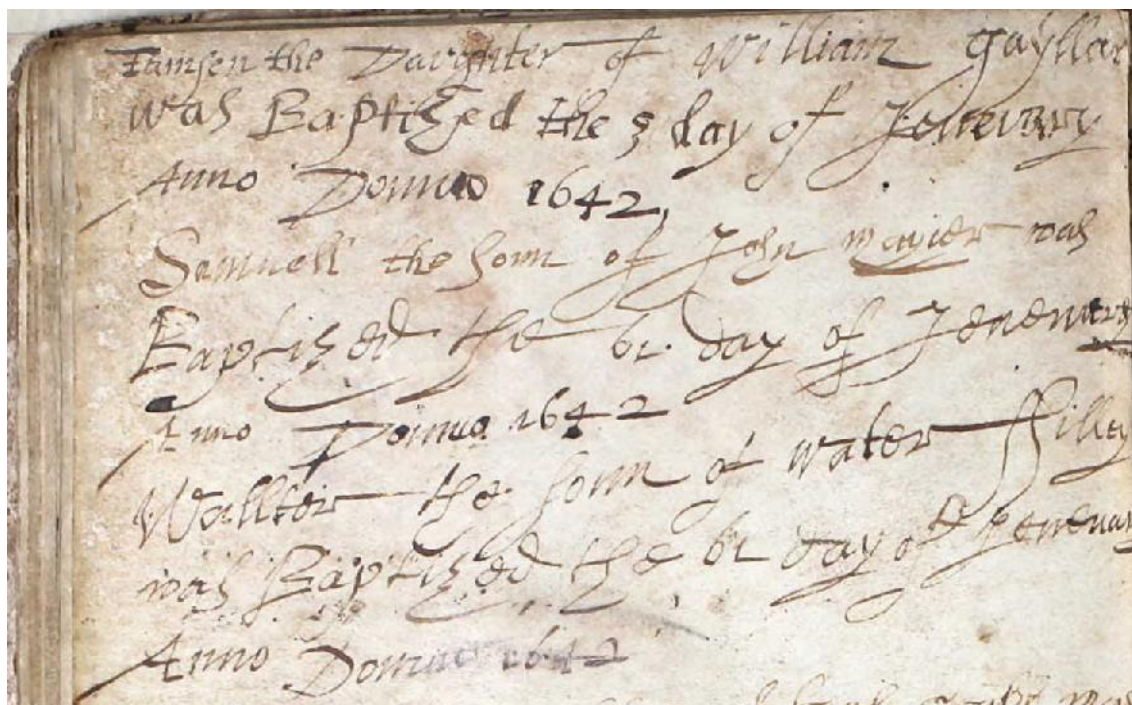 Tamsen the Daughter of William Gayllar
was Baptized the 3 day of Jeneuary
Anno Domino 1642
Samuell the sonn of John mayier was
Baptized the 6t day of Jeneuary
Anno Domino 1642
Wallter the sonn of water ffilley
was Baptized the 6t day of Jeneuary
Anno Domino 1642